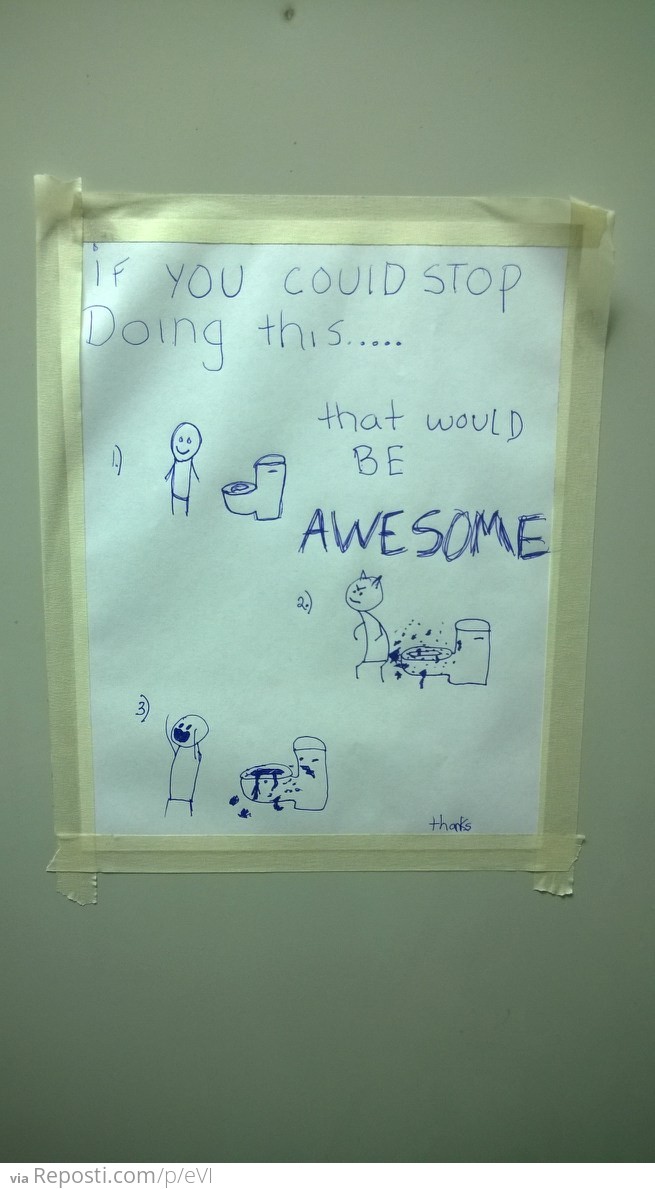 iF YOU COUlD STOP
Doing this.....
that WOULD
BE
AWESOME
1.)
2.)
3)
thanks
via Reposti.com/p/eVl